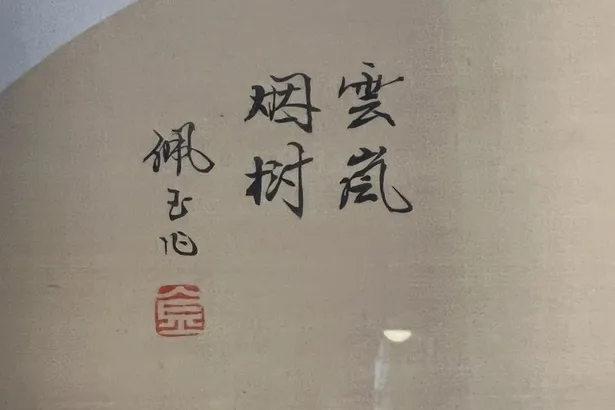 雲嵐
烟树
佩玉作